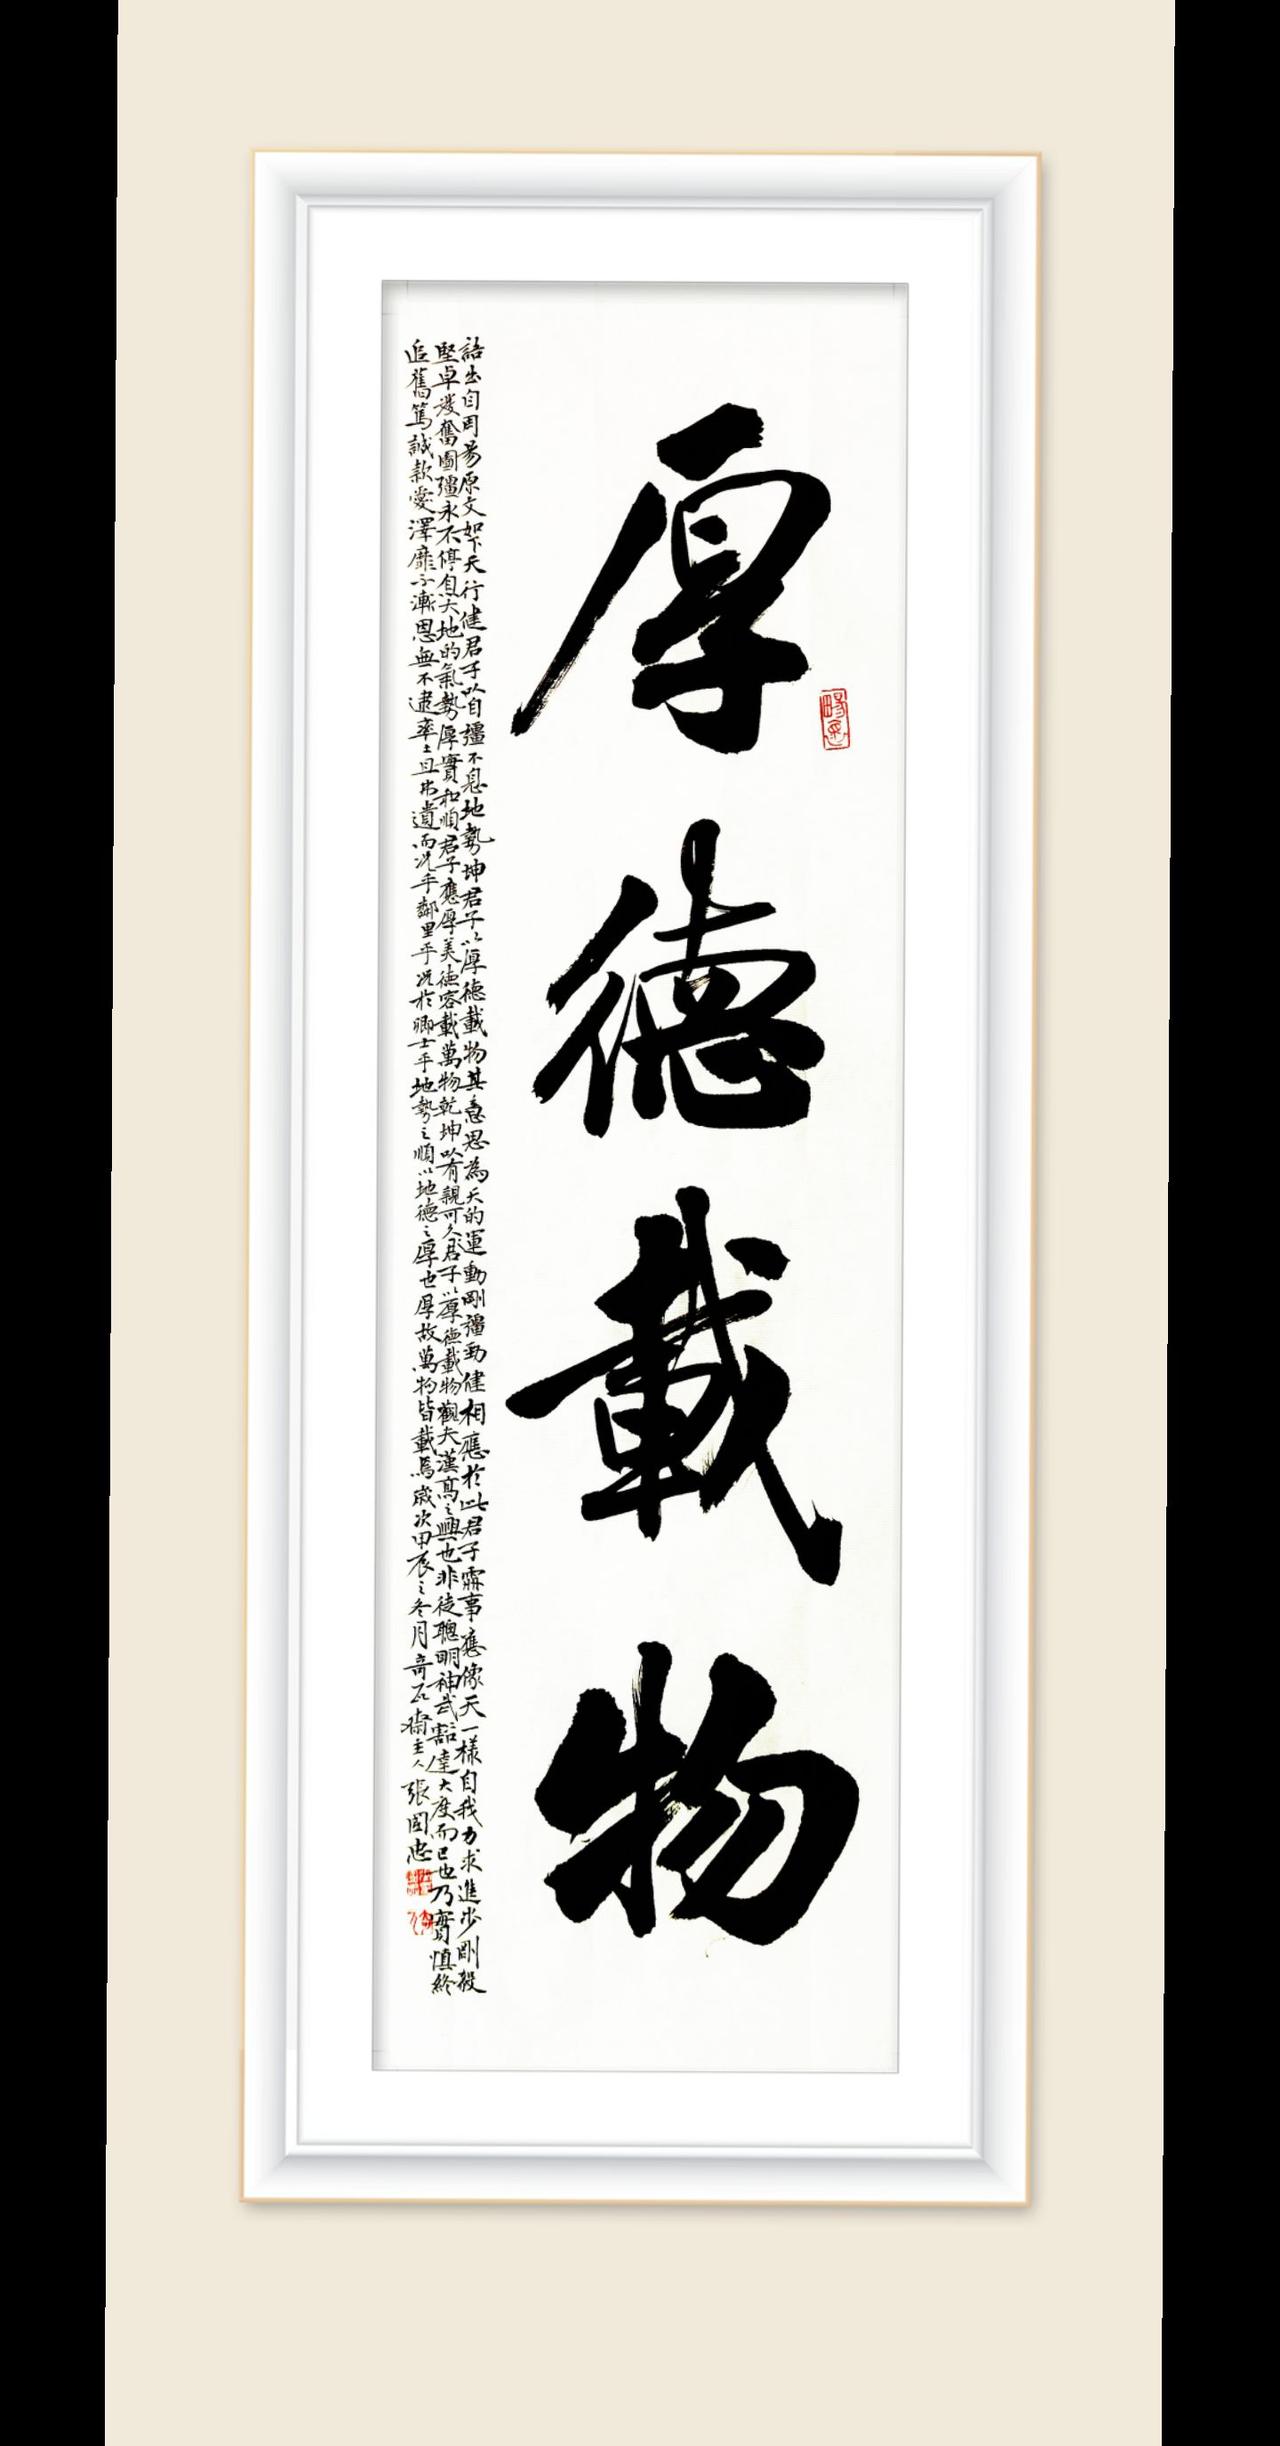 厚德載物
語出自周易原文如下天行健君子以自彊不息地勢坤君子以厚德載物其意思為天的運動剛彊勁健相應於此君子處事應像天一樣自我力求進步剛毅
堅卓發奮圖彊永不停息大地的氣勢厚實和順君子應厚美德容載萬物乾坤以有親可久君子以厚德載物觀夫漢高之興也非徒聰明神武豁達大度而已也乃實慎終
追舊篤誠款愛澤靡不漸恩無不逮率土且弗遺而況乎鄰里乎況於卿士乎地勢之順以地德之厚也厚故萬物皆載焉歲次甲辰之冬月奇石齋主人張國忠